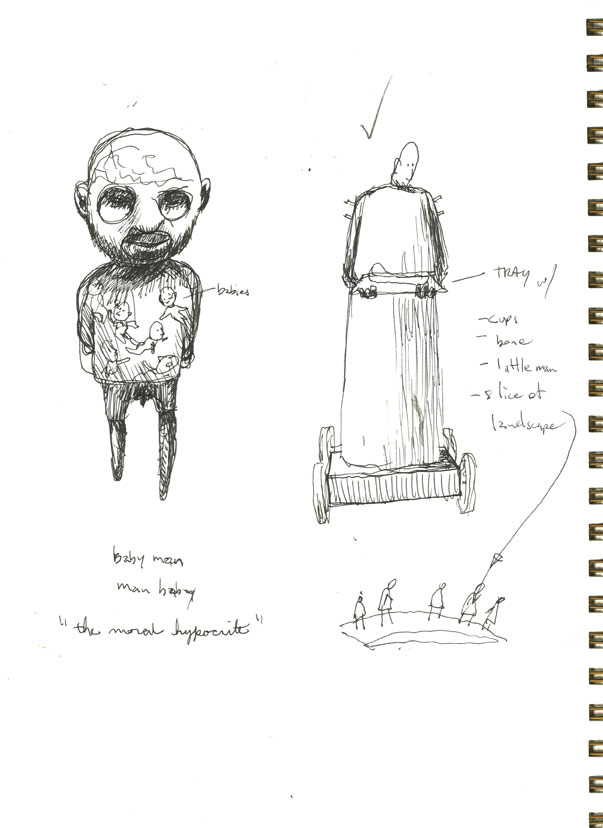 babies
TRAY w/
- cups
- bone
- little man
- slice of
landscape
baby man
man baby
"the moral hypocrite"